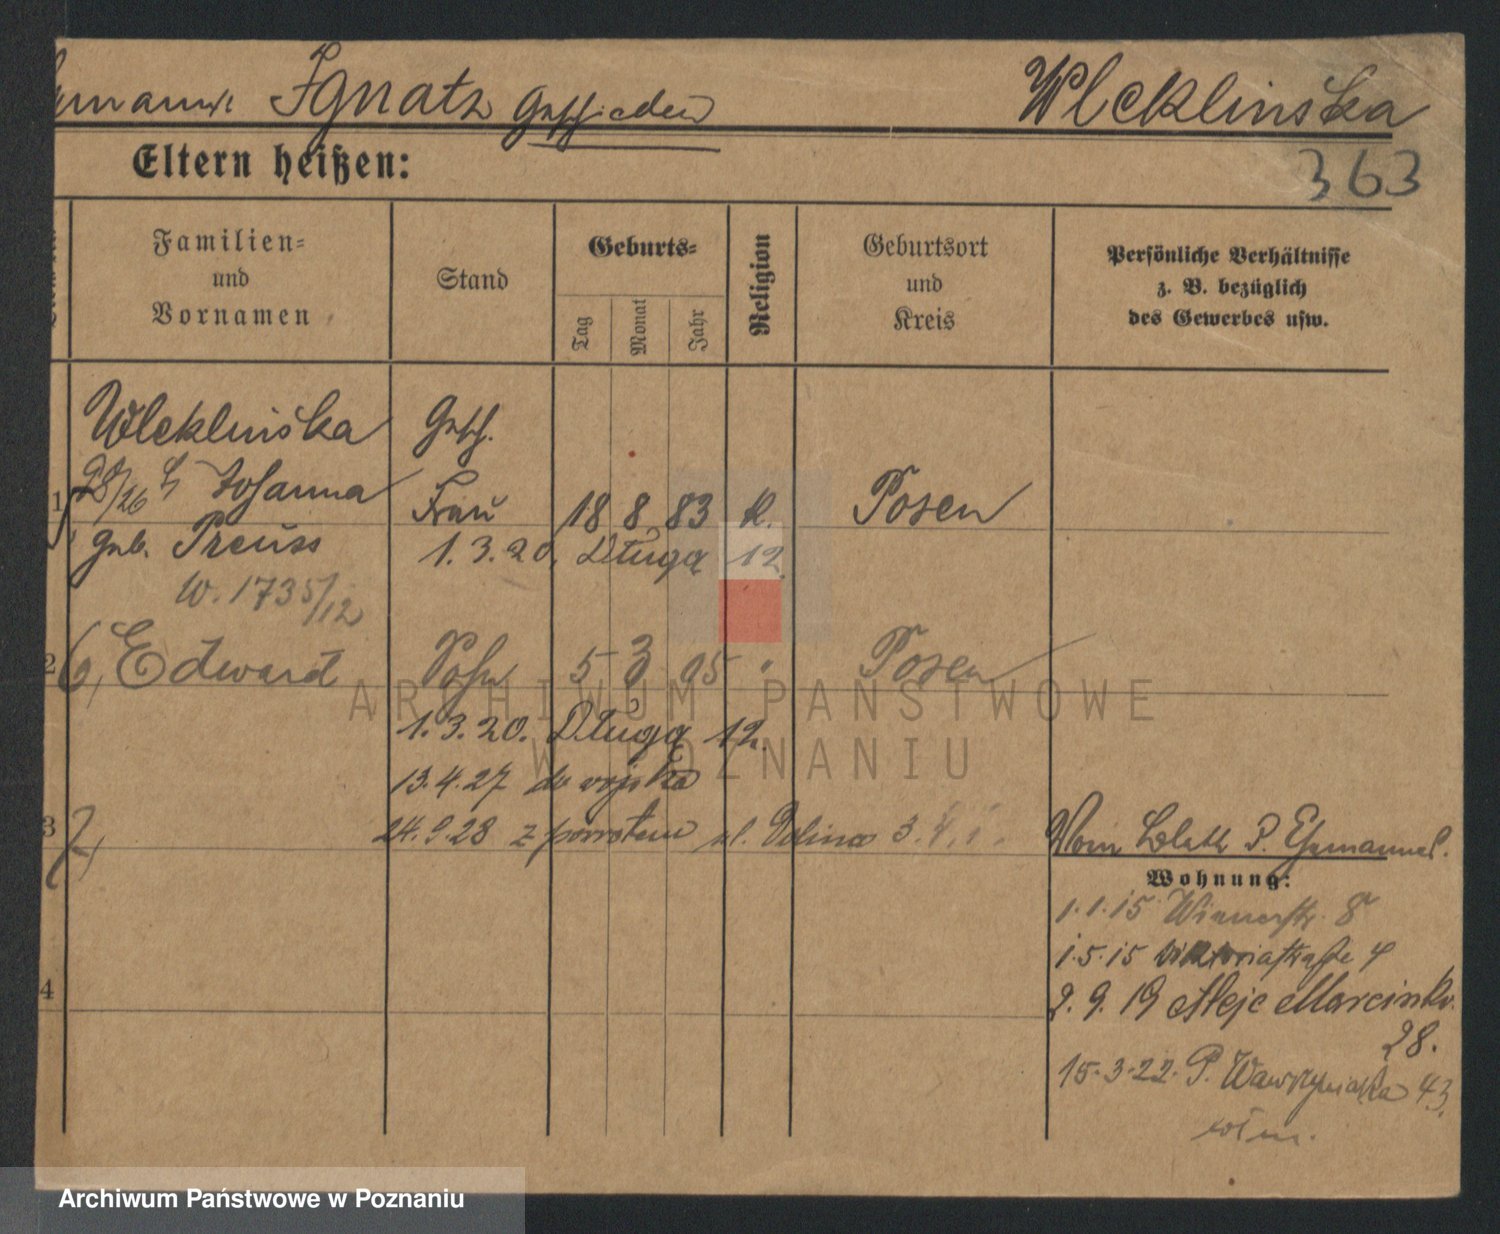 Ehemann: Ignatz geschieden Wleklinska
363
Eltern heißen:
Familien=
und
Vornamen
Stand
Geburts=
Tag
Monat
Jahr
Religion
Geburtsort
und
Kreis
Persönliche Verhältnisse
z. B. bezüglich
des Gewerbes usw.
Wleklinska gesch.
1 28/26 Johanna Frau 18 8 83 k. Posen
geb. Preuss 1.3.20. Długa 12.
W. 1735/12
2 Edward Sohn 5 3 05 " Posen
1.3.20. Długa 12.
13.4.27 do wojska
3 24.9.28 z powrotem ul. 3.
Vom Blatt d. Ehemannes.
Wohnung:
1.1.15 8
1.5.15 Viktoriastraße 4
4 2.9.19 Aleje Marcinko.
28.
15.3.22. P. Wawrzyniaka 43.
ARCHIWUM PAŃSTWOWE
W POZNANIU
Archiwum Państwowe w Poznaniu